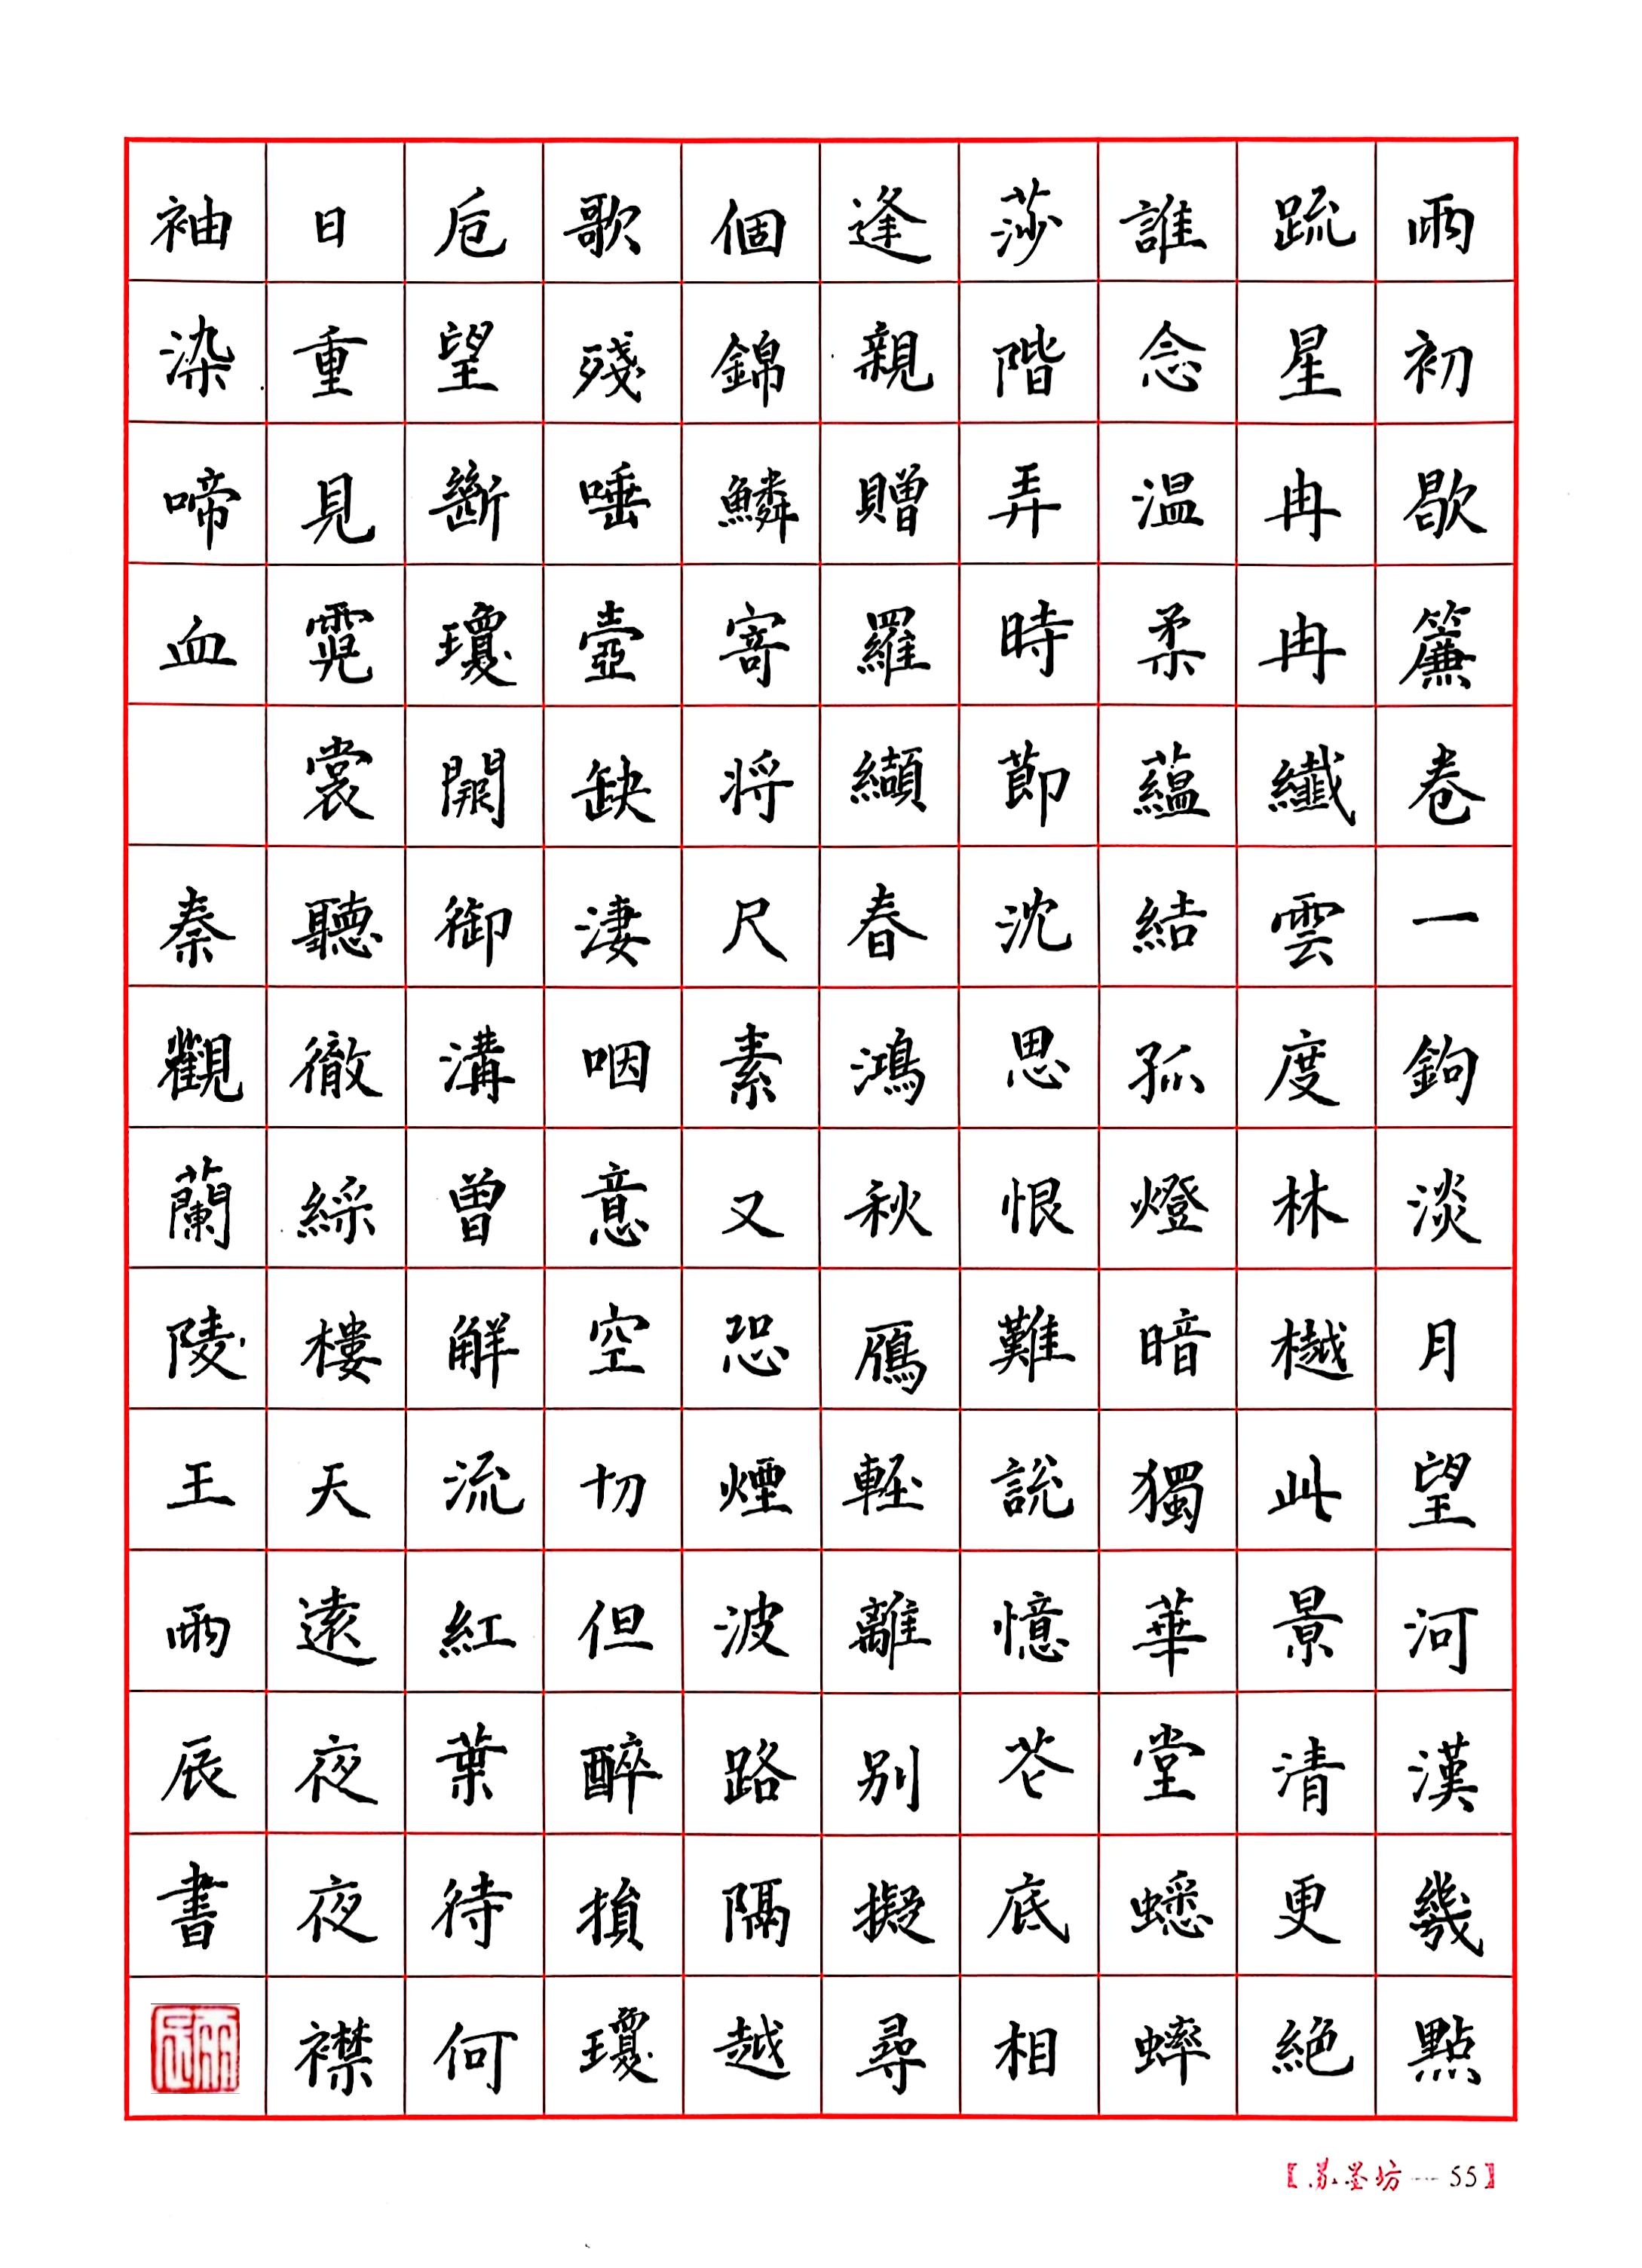 雨初歇簾卷一鉤淡月望河漢幾點
疏星冉冉纖雲度林樾此景清更絕
誰念溫柔蘊結孤燈暗獨華堂蟋蟀
莎階弄時節沈思恨難說憶花底相
逢親贈羅纈春鴻秋雁輕離別擬尋
個錦鱗寄將尺素又恐煙波路隔越
歌殘唾壺缺淒咽意空切但醉損瓊
卮望斷瓊閣御溝曾解流紅葉待何
日重見霓裳聽徹綵樓天遠夜夜襟
袖染啼血 秦觀蘭陵王雨辰書
雨辰
【蘇墨坊—55】